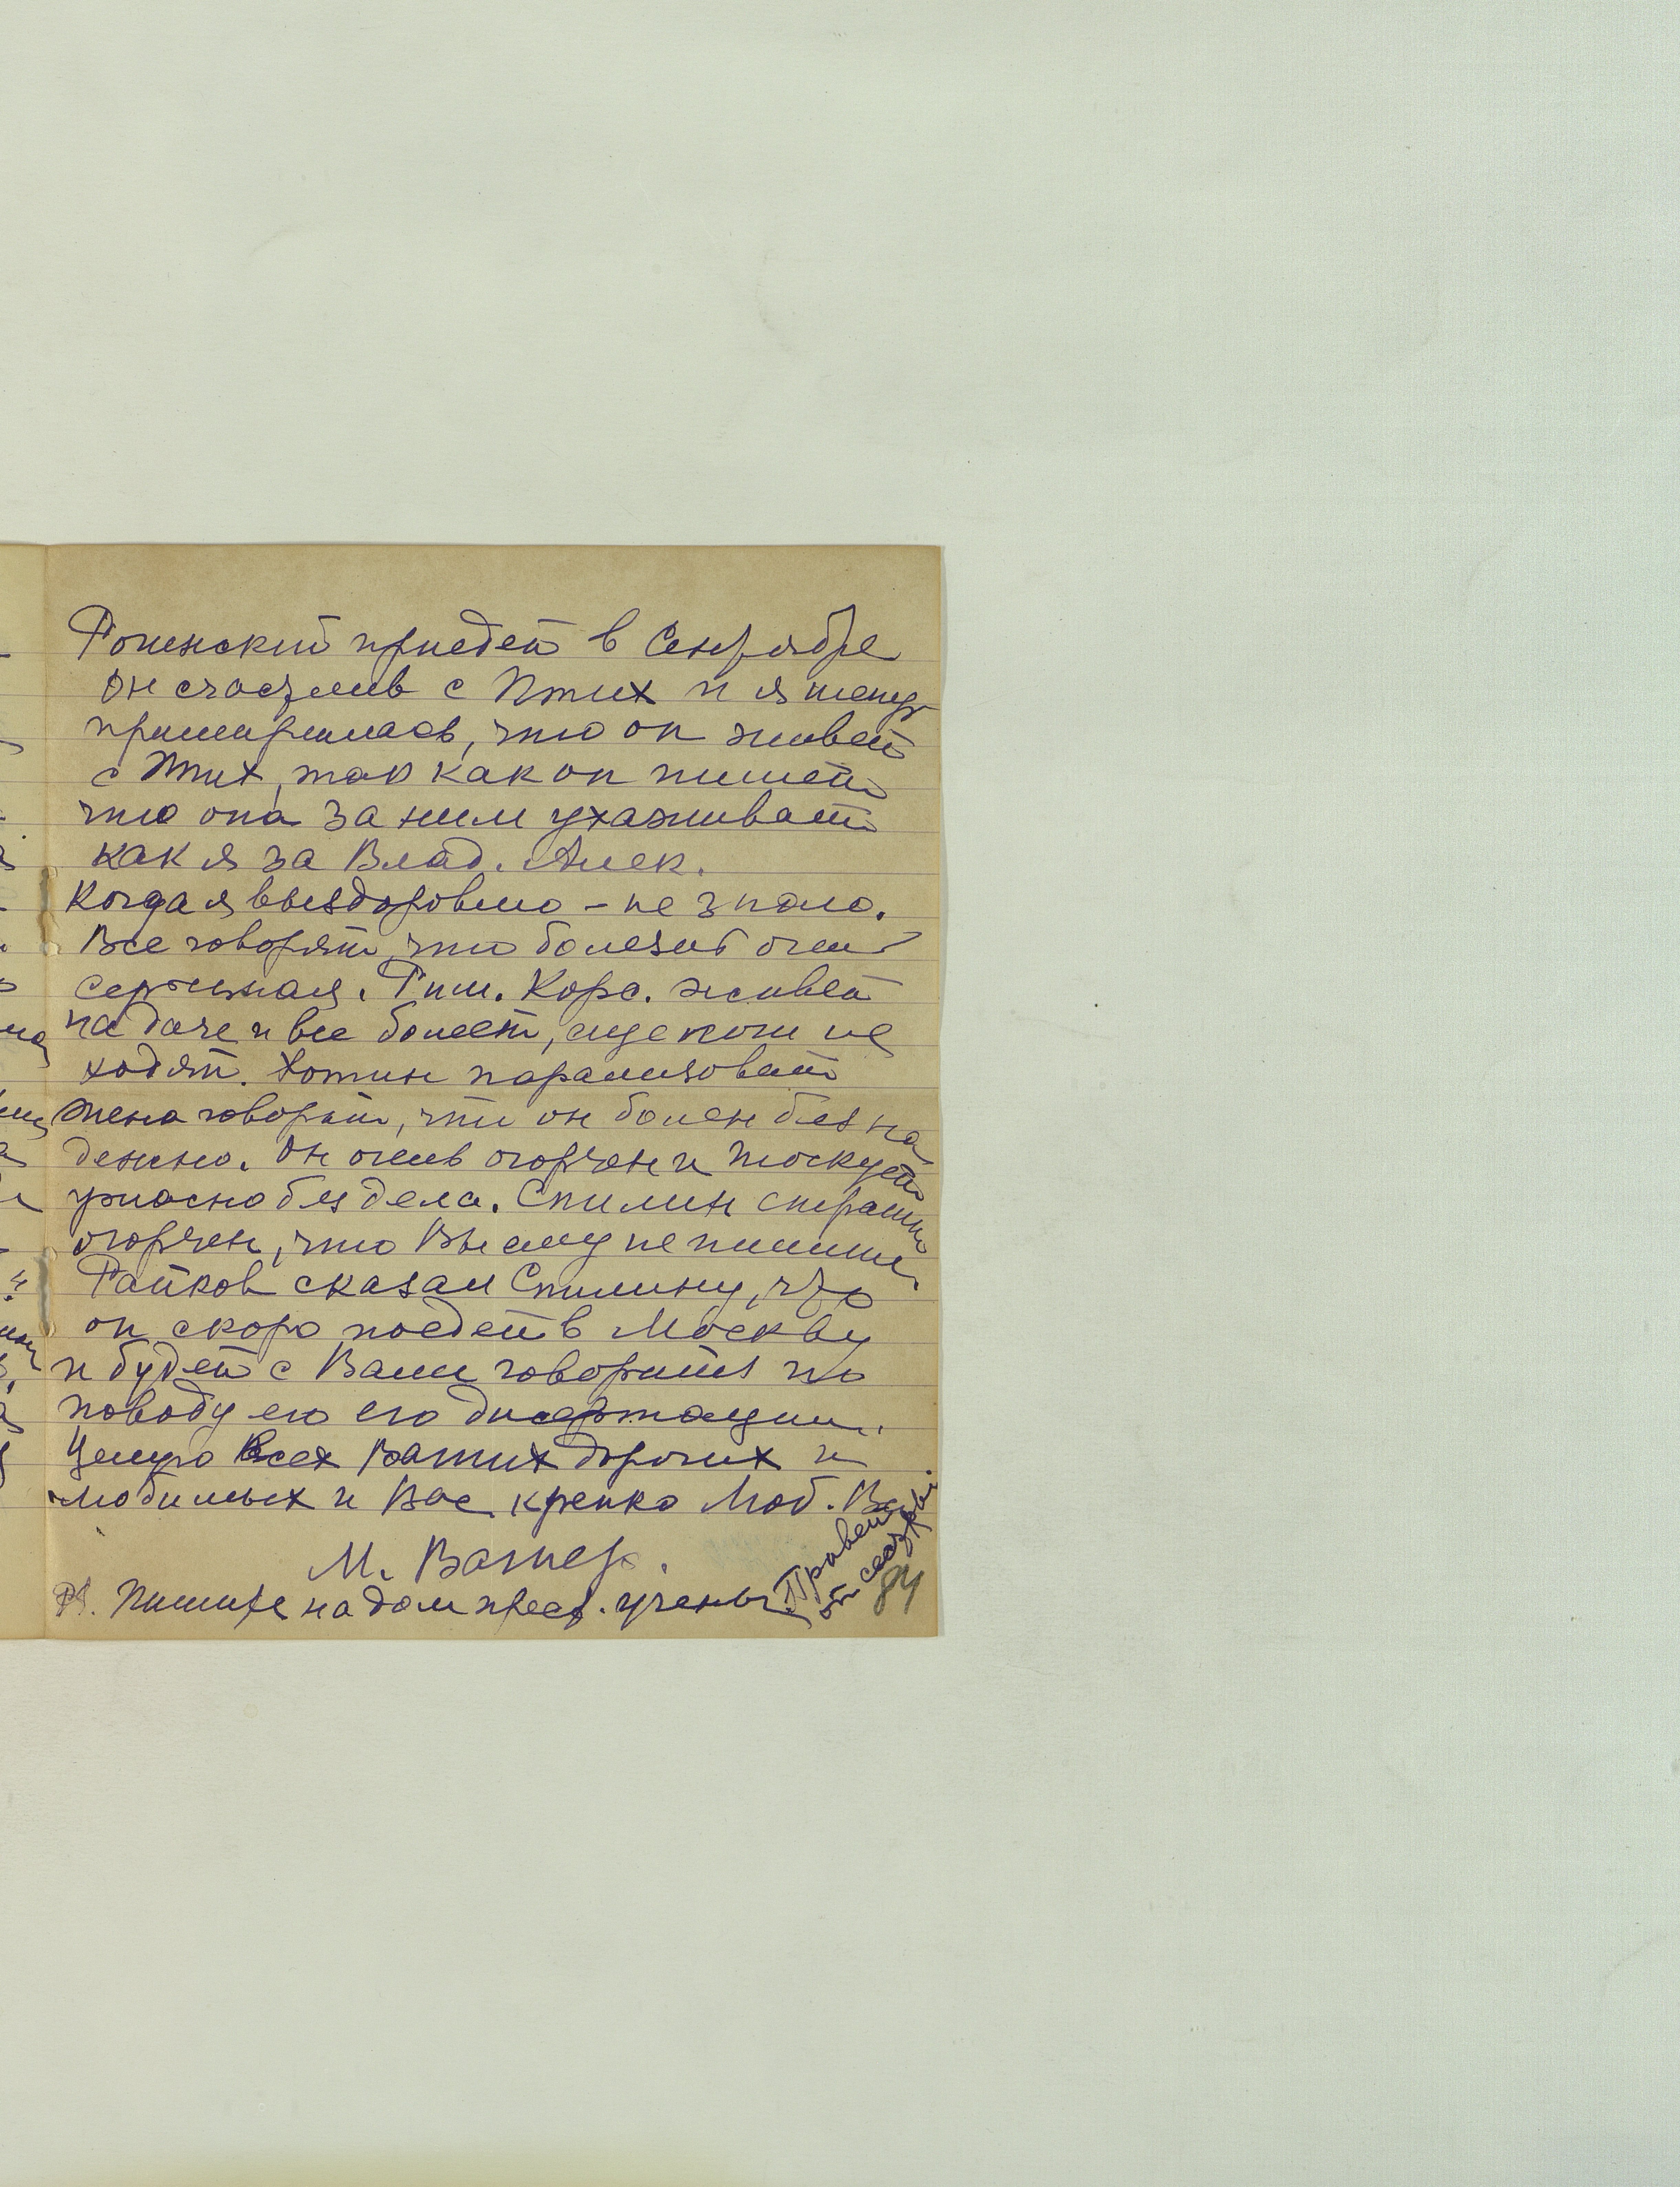 Рогинский приедет в Сентябре
Он счастлив с Птих и я теперь
примирилась, что он живет
с Птих, так как он пишет
что она за ним ухаживает
как я за Влад. Алек.
Когда я выздоровлю – не знаю.
Все говорят, что болезнь очень
серьезная. Рим. Корс. живет
на даче и все болеет, еще ноги не
ходят. Хотин парализован
жена говорит, что он болен безна
дежно. Он очень огорчен и тоскует
ужасно без дела. Спилин страшно
огорчен, что Вы ему не пишите.
Райков сказал Спилину, что
он скоро поедет в Москву
и будет с Вами говорить по
поводу его его дисертации.
Целую Всех Ваших дорогих и
любимых и Вас крепко Люб. Вас
М. Вагнер.
PS. Пишите на дом прест. ученых
Привет
от сестры.
84